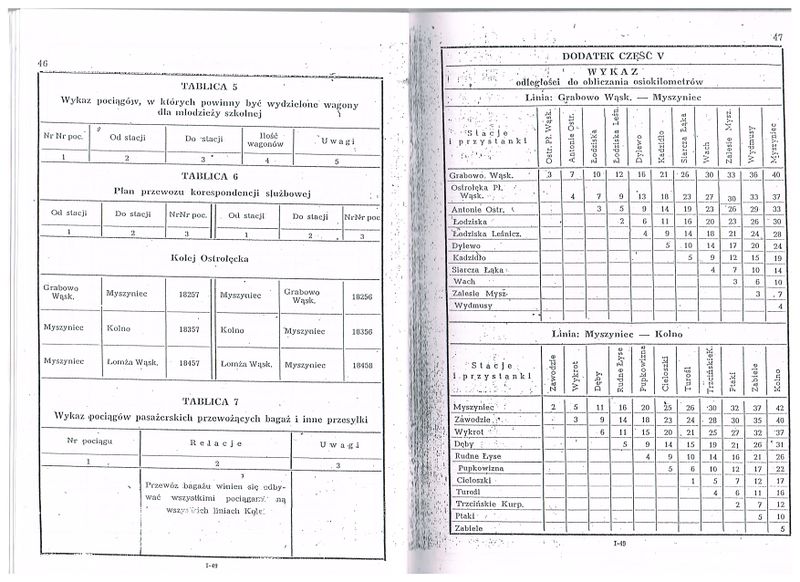 46
TABLICA 5
Wykaz pociągów, w których powinny być wydzielone wagony
dla młodzieży szkolnej
Nr Nr poc. Od stacji Do stacji Ilość wagonów Uwagi
1 2 3 4 5
TABLICA 6
Plan przewozu korespondencji służbowej
Od stacji Do stacji NrNr poc. Od stacji Do stacji NrNr poc.
1 2 3 1 2 3
Kolej Ostrołęcka
Grabowo Wąsk. Myszyniec 18257 Myszyniec Grabowo Wąsk. 18256
Myszyniec Kolno 18357 Kolno Myszyniec 18356
Myszyniec Łomża Wąsk. 18457 Łomża Wąsk. Myszyniec 18458
TABLICA 7
Wykaz pociągów pasażerskich przewożących bagaż i inne przesyłki
Nr pociągu Relacje Uwagi
1 2 3
Przewóz bagażu winien się odby-
wać wszystkimi pociągami na
wszystkich liniach Kolei
I-49
47
DODATEK CZĘŚĆ V
WYKAZ
odległości do obliczania osiokilometrów
Linia: Grabowo Wąsk. — Myszyniec
Stacje i przystanki Ostr. Pł. Wąsk. Antonie Ostr. Łodziska Łodziska Leśn. Dylewo Kadzidło Siarcza Łąka Wach Zalesie Mysz. Wydmusy Myszyniec
Grabowo Wąsk. 3 7 10 12 16 21 26 30 33 36 40
Ostrołęka Pł.
Wąsk. 4 7 9 13 18 23 27 30 33 37
Antonie Ostr. 3 5 9 14 19 23 26 29 33
Łodziska 2 6 11 16 20 23 26 30
Łodziska Leśnicz. 4 9 14 18 21 24 28
Dylewo 5 10 14 17 20 24
Kadzidło 5 9 12 15 19
Siarcza Łąka 4 7 10 14
Wach 3 6 10
Zalesie Mysz. 3 7
Wydmusy 4
Linia: Myszyniec — Kolno
Stacje i przystanki Zawodzie Wykrot Dęby Rudne Łyse Pupkowizna Cieloszki Turośl Trzcińskie K. Ptaki Zabiele Kolno
Myszyniec 2 5 11 16 20 25 26 30 32 37 42
Zawodzie 3 9 14 18 23 24 28 30 35 40
Wykrot 6 11 15 20 21 25 27 32 37
Dęby 5 9 14 15 19 21 26 31
Rudne Łyse 4 9 10 14 16 21 26
Pupkowizna 5 6 10 12 17 22
Cieloszki 1 5 7 12 17
Turośl 4 6 11 16
Trzcińskie Kurp. 2 7 12
Ptaki 5 10
Zabiele 5
I-49